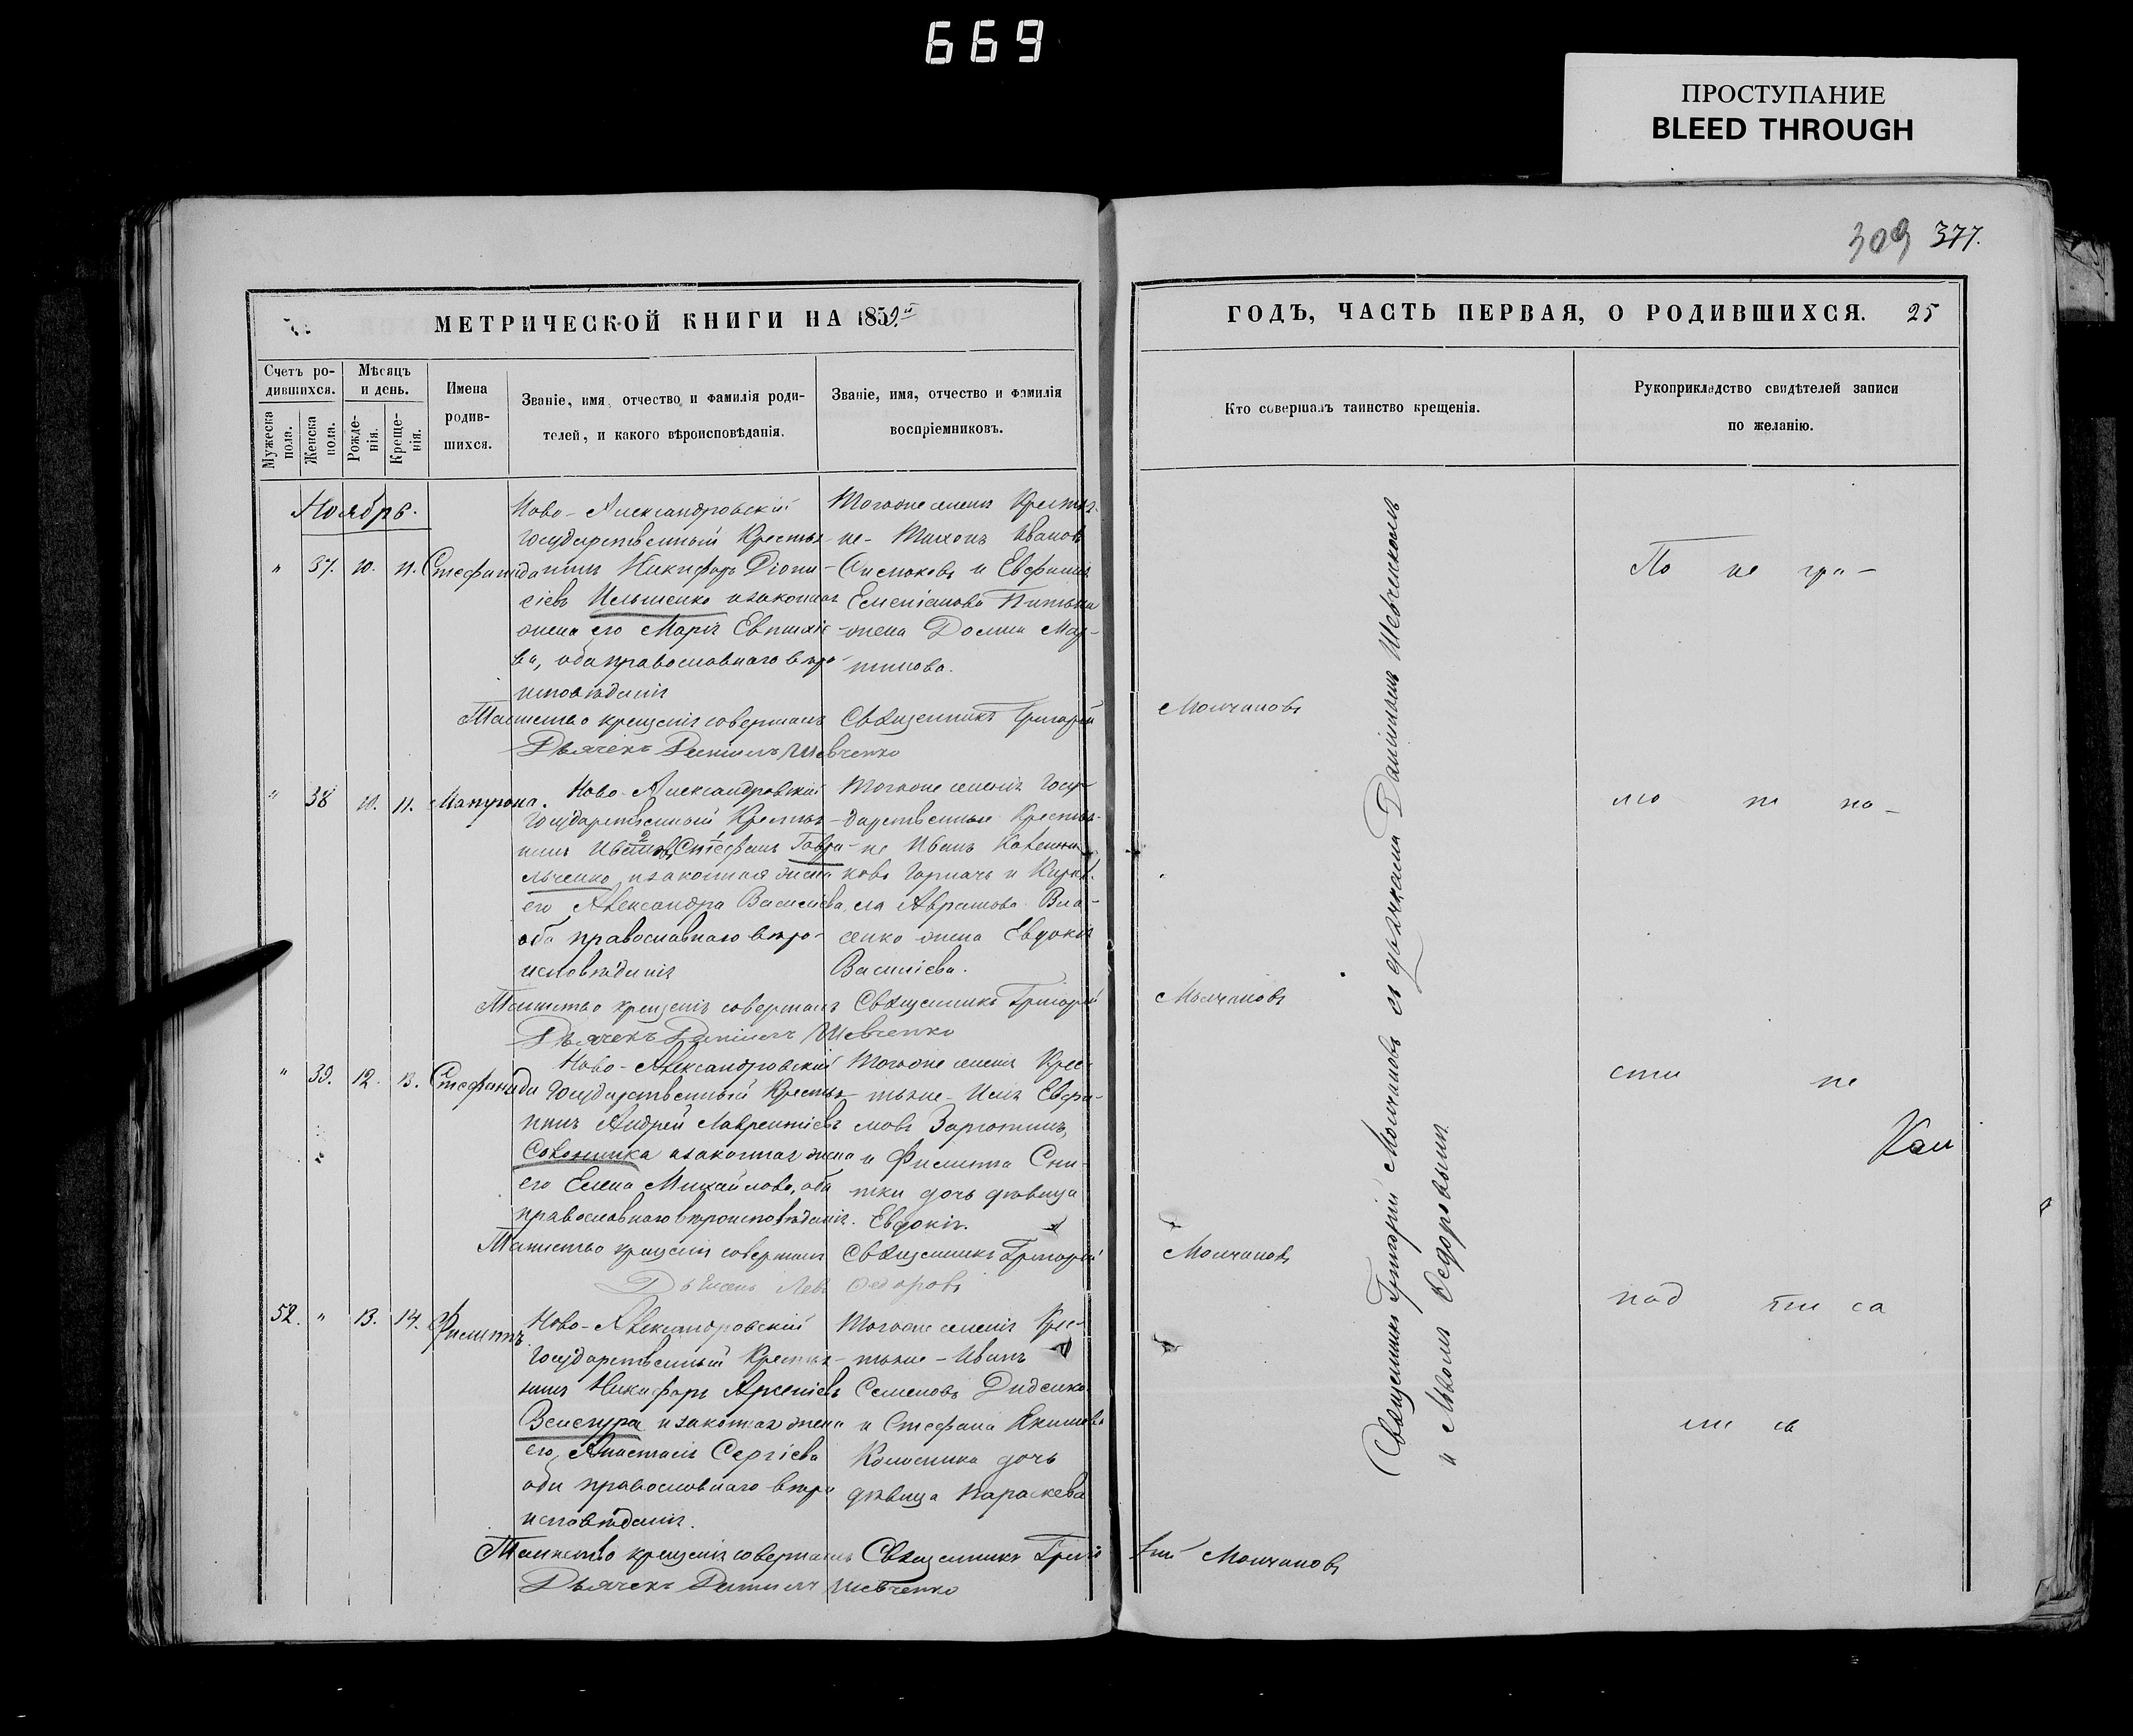 669
ПРОСТУПАНИЕ
BLEED THROUGH
309 377.
МЕТРИЧЕСКОЙ КНИГИ НА 1859й
ГОДЪ, ЧАСТЬ ПЕРВАЯ, О РОДИВШИХСЯ. 25
Счетъ родившихся.
Мужеска пола.
Женска пола.
Мѣсяцъ и день.
Рожденія.
Крещенія.
Имена родившихся.
Званіе, имя, отчество и фамилія родителей, и какого вѣроисповѣданія.
Званіе, имя, отчество и фамилія воспріемниковъ.
Кто совершалъ таинство крещенія.
Рукоприкладство свидѣтелей записи по желанію.
Ноябрь.
" 37. 10. 11. Стефанида
Ново-Александровскій
Государственный Крестья-
нинъ Никифоръ Діони-
сіевъ Ильшенко и законная
жена его Марія Евпихіе-
ва, оба православнаго вѣро-
исповѣданія
Тогоже селенія Крестья-
не - Тихонъ Ивановъ
и Евфимія
Емеліанова
жена Домна Мар-
тинова.
Таинство крещенія совершалъ Священникъ Григорій Молчановъ
Дьячекъ Даніилъ Шевченко
" 38 10. 11. Матрона.
Ново-Александровскій
Государственный Крестья-
нинъ Ивановъ Стефанъ Гаври-
льченко и законная жена
его Александра Василіева,
оба православнаго вѣро-
исповѣданія
Тогоже селенія Госу-
дарственные Крестья-
не Иванъ
ковъ Горкачъ и Кирил-
ла Абрамова Вла-
сенко жена Евдокія
Василіева.
Таинство крещенія совершалъ Священникъ Григорій Молчановъ
Дьячекъ Даніилъ Шевченко
" 39. 12. 13. Стефанида
Ново-Александровскій
Государственный Крестья-
нинъ Андрей Лаврентіевъ
Соколинка и законная жена
его Елена Михайлова, оба
православнаго вѣроисповѣданія.
Тогоже селенія Крес-
тьяне - Илія Евфи-
мовъ
и Филиппа Сни-
тки дочь дѣвица
Евдокія.
Таинство крещенія совершалъ Священникъ Григорій Молчановъ
Дьяконъ Левъ Федоровъ
52. " 13. 14. Филиппъ
Ново-Александровскій
Государственный Крестья-
нинъ Никифоръ Арсеніевъ
Венегура и законная жена
его Анастасія Сергіева
оба православнаго вѣро-
исповѣданія.
Тогоже селенія Крес-
тьяне - Иванъ
Семеновъ Диденко
и Стефана Якимова
Колесника дочь
дѣвица Параскева
Таинство крещенія совершалъ Священникъ Григорій Молчановъ
Дьячекъ Даніилъ Шевченко
Священникъ Григорій Молчановъ съ дьячкомъ Даніиломъ Шевченкомъ
и Львомъ Федоровымъ.
По не гра-
мо т но-
сти не
Кол
под пи са
ли сь